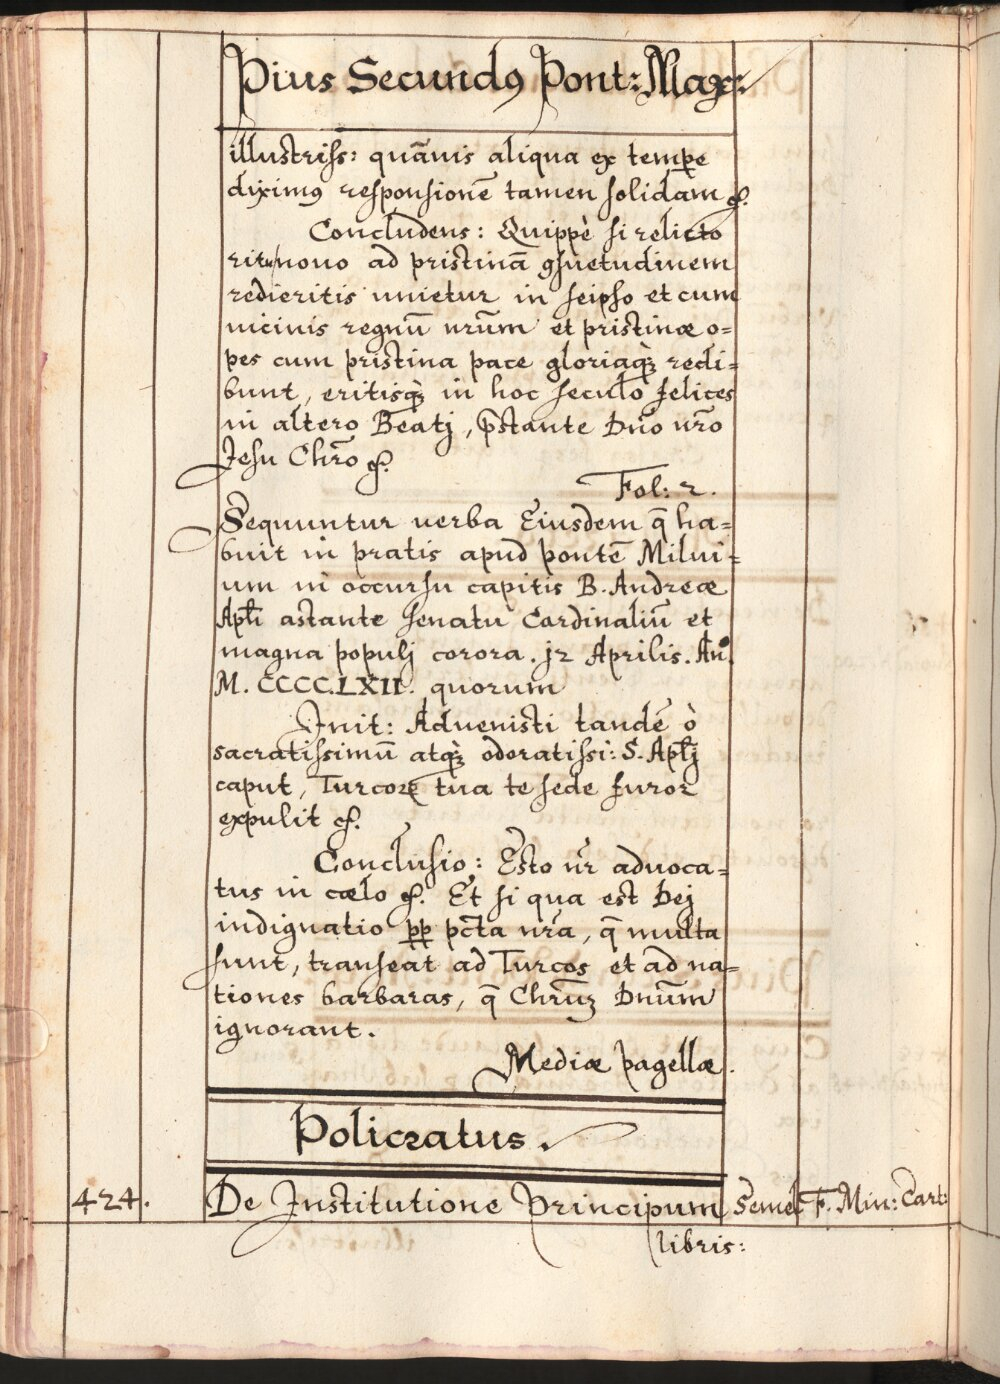 Pius Secundꝰ Pont: Max:
illustriss: quãuis aliqua ex tempe
diximꝰ responsionē tamen solidam &.
Concludens: Quippè si relicto
ritu nouo ad pristinã ꝯsuetudinem
redieritis unietur in seipso et cum
uicinis regnū urūm et pristinæ o=
pes cum pristina pace gloriaqꝫ redi=
bunt, eritisqꝫ in hoc seculo felices
in altero Beatj, p̄stante Dn̄o nr̄o
Jesu Chr̄o &.
Fol: 2.
Sequuntur uerba Eiusdem q̄ ha=
buit in pratis apud pontē Milui=
um in occursu capitis B. Andreæ
Apl̄i astante senatu Cardinaliū et
magna populj corora. j2 Aprilis. An̄.
M. CCCC.LXII. quorum
Init: Aduenisti tandē ò
sacratissimū atqꝫ odoratissi: S. Apl̄j
caput, Turcoꝝ tua te sede furor
expulit &.
Conclusio: Esto nr̄ aduoca=
tus in cælo &. Et si qua est Dej
indignatio ꝓꝑ pc̄ta nr̄a, q̄ multa
sunt, transeat ad Turcos et ad na=
tiones barbaras, q̄ Chrūꝫ Dnūm
ignorant.
Mediæ pagellæ.
Policratus.
424. De Institutione Principum Semel F. Min: Cart:
libris: